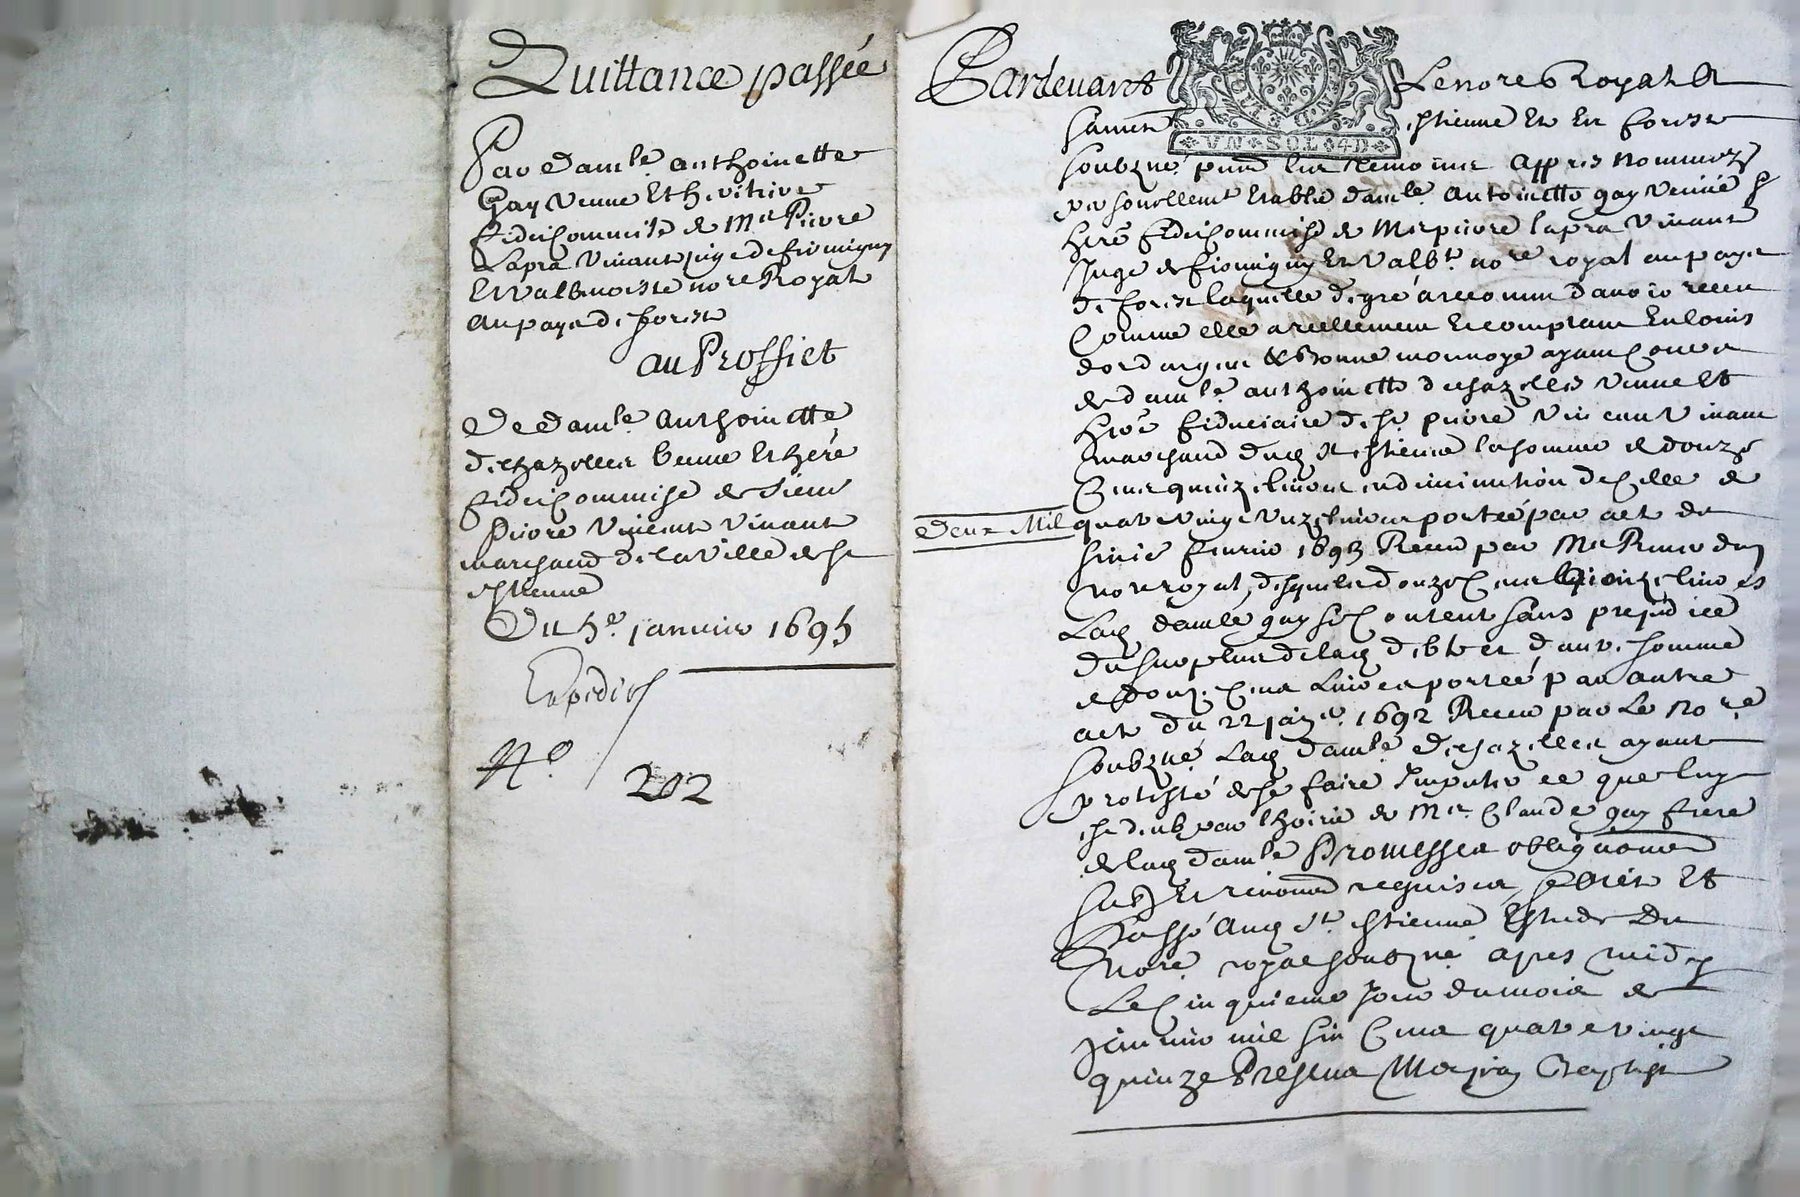 Quittance passée
Par damle. anthoinette
Gay veuve Et heritiere
fideicommise de Mre Pierre
Lapra vivant juge de firmigny
Et valbenoiste nore Royal
au pays de forest
au Proffict
De damle. Anthoinette
dechazelles veuve Et here
fideicommise de sieur
Pierre Vincent vivant
marchand de la Ville de St
estienne
Du 5e. janvier 1695
Expedié
No. 202
Pardevant Le nore Royal A
Sainct estienne Et En forest
soubzné
UN SOL 4D
personellemt Establie damle. Antoinette gay veuve &
here fideicommise de Mre pierre lapra vivant
Juge de firmigny Et valbt. nore royal au pays
de forest laquelle de gré a reconnu d'avoir receu
Comme elle a reellement Et comptant En louis
dor dargent & bonne monnoye ayant cours
de damle. anthoinette dechazelles veuve Et
here fiduciaire de sr. pierre Vincent vivant
marchand dud St estienne la somme de douze
Cent quinze livres en diminution de Celle de
deux Mil quatre vingt unze livres portée par act du
fevrier 1693 Receu par Me
nore royal, desquels douze Cent Quinze livres
Lad damle gay se Contente sans prejudice
du surplus de lad debte et dautre somme
de Cent Livres portée par autre
act du 22 janer. 1692 Receu par Le nore
soubzné Lad damle. dechazelles ayant
protesté de se faire Imputer ce que luy
est deub par lhoirie de Mre. Claude gay frere
de lad damle Promesses obligaons
sub. Et renonaons requises, faict Et
Passé Aud St. estienne Estude Du
Nore. royal soubzné apres midy
Le Cinquieme Jour du mois de
Janvier mil six Cent quatre vingt
quinze Presens